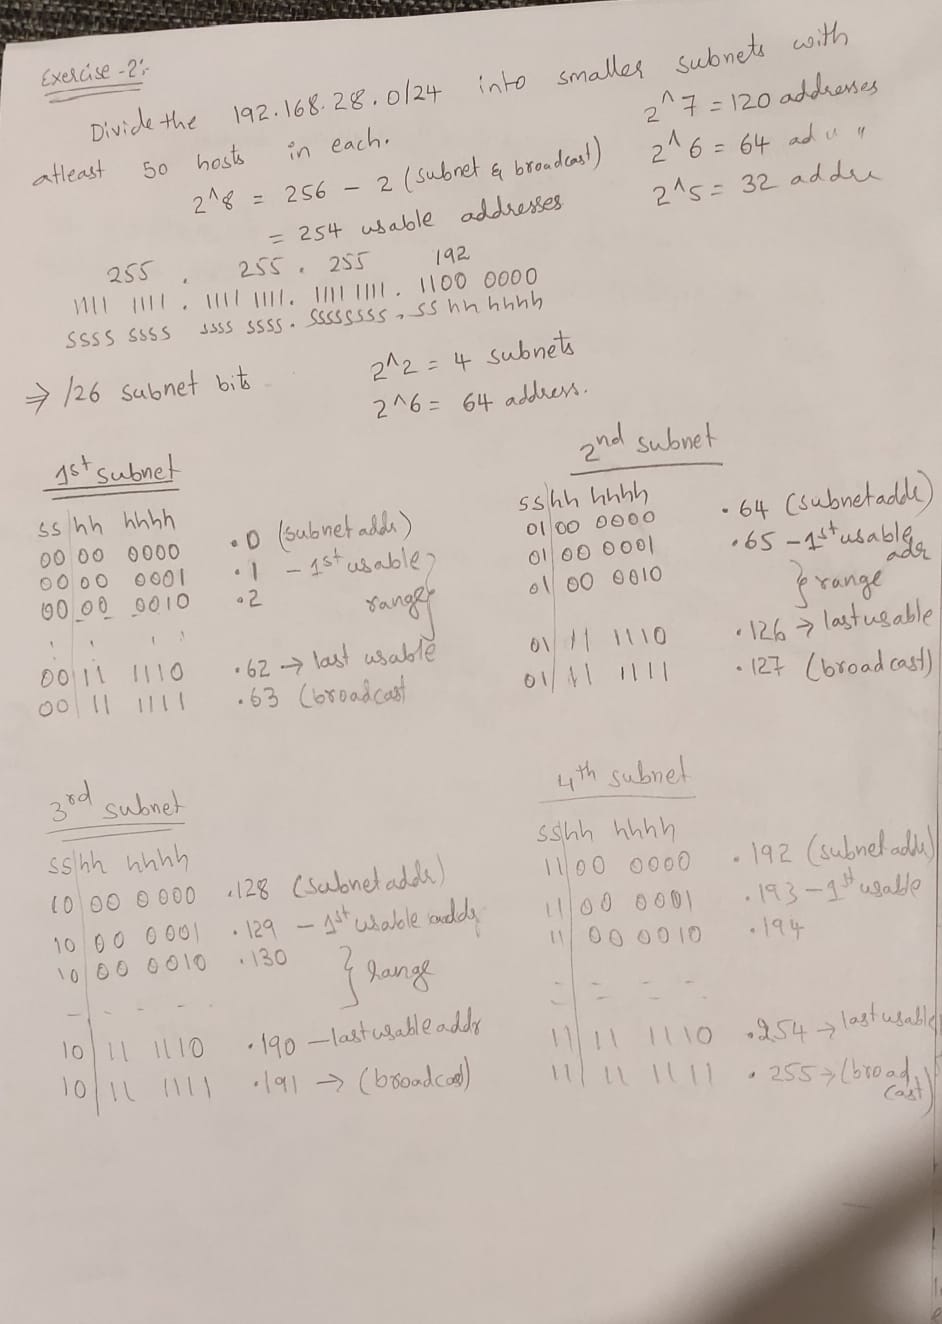 Exercise -2:-
Divide the 192.168.28.0/24 into smaller subnets with
atleast 50 hosts in each.
2^7 = 120 addresses
2^6 = 64 ad " "
2^5 = 32 addre
2^8 = 256 - 2 (subnet & broadcast)
= 254 usable addresses
255 . 255 . 255 192
1111 1111 . 1111 1111. 1111 1111 . 1100 0000
ssss ssss ssss ssss. ssssssss, ss hh hhhh
⇒ /26 subnet bits
2^2 = 4 subnets
2^6 = 64 address.
1st subnet
ss|hh hhhh
00 00 0000 .0 (subnet addr)
00 00 0001 .1 - 1st usable
00 00 0010 .2 range
: : : :
00 11 1110 .62 → last usable
00 11 1111 .63 (broadcast
2nd subnet
ss|hh hhhh
01 00 0000 .64 (subnet addr)
01 00 0001 .65 - 1st usable addr
01 00 0010 } range
01 11 1110 .126 → last usable
01 11 1111 .127 (broadcast)
3rd subnet
ss|hh hhhh
10 00 0000 .128 (subnet addr)
10 00 0001 .129 - 1st usable addr
10 00 0010 .130 } range
- - - -
10 11 1110 .190 - last usable addr
10 11 1111 .191 → (broadcast)
4th subnet
ss|hh hhhh
11 00 0000 .192 (subnet addr)
11 00 0001 .193 - 1st usable
11 00 0010 .194
= = = =
11 11 1110 .254 → last usable
11 11 1111 .255 → (broad
cast)